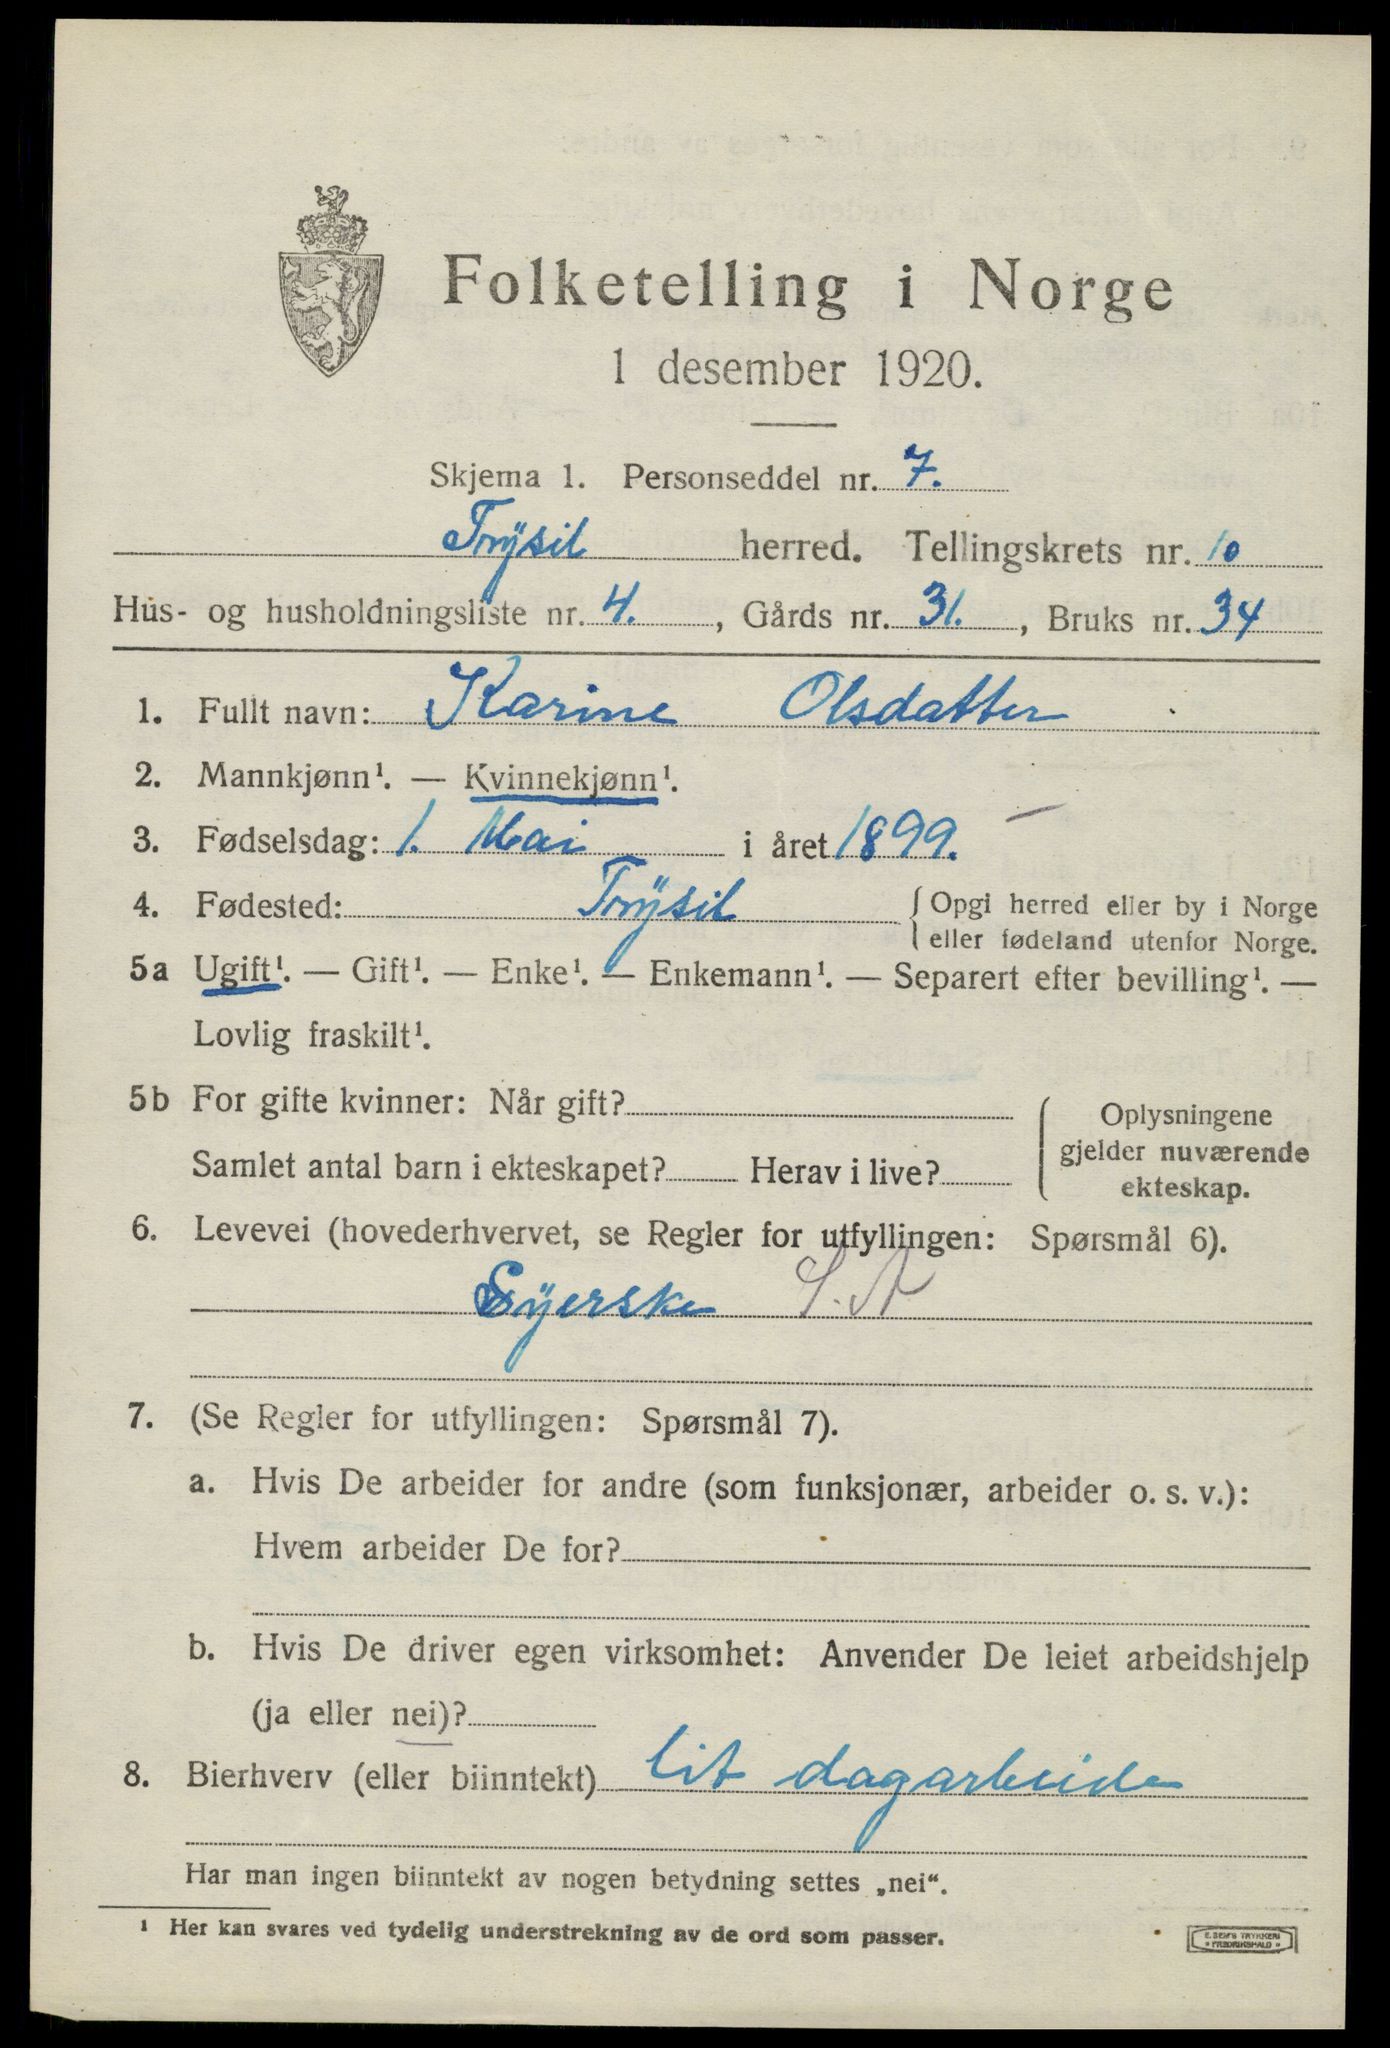 Folketelling i Norge
1 desember 1920.
Skjema 1. Personseddel nr. 7.
Trysil herred. Tellingskrets nr. 10
Hus- og husholdningsliste nr. 4., Gårds nr. 31., Bruks nr. 34
1. Fullt navn: Karine Olsdatter
2. Mannkjønn¹. — Kvinnekjønn¹.
3. Fødselsdag: 1. Mai i året 1899.
4. Fødested: Trysil { Opgi herred eller by i Norge
eller fødeland utenfor Norge.
5a Ugift¹. — Gift¹. — Enke¹. — Enkemann¹. — Separert efter bevilling¹. —
Lovlig fraskilt¹.
5b For gifte kvinner: Når gift?
Samlet antal barn i ekteskapet? Herav i live?
Oplysningene
gjelder nuværende
ekteskap.
6. Levevei (hovederhvervet, se Regler for utfyllingen: Spørsmål 6).
Syerske S. A
7. (Se Regler for utfyllingen: Spørsmål 7).
a. Hvis De arbeider for andre (som funksjonær, arbeider o. s. v.):
Hvem arbeider De for?
b. Hvis De driver egen virksomhet: Anvender De leiet arbeidshjelp
(ja eller nei)?
8. Bierhverv (eller biinntekt) lit dagarbeide
Har man ingen biinntekt av nogen betydning settes „nei“.
¹ Her kan svares ved tydelig understrekning av de ord som passer.
E. SEM'S TRYKKERI
« FREDRIKSHALD »